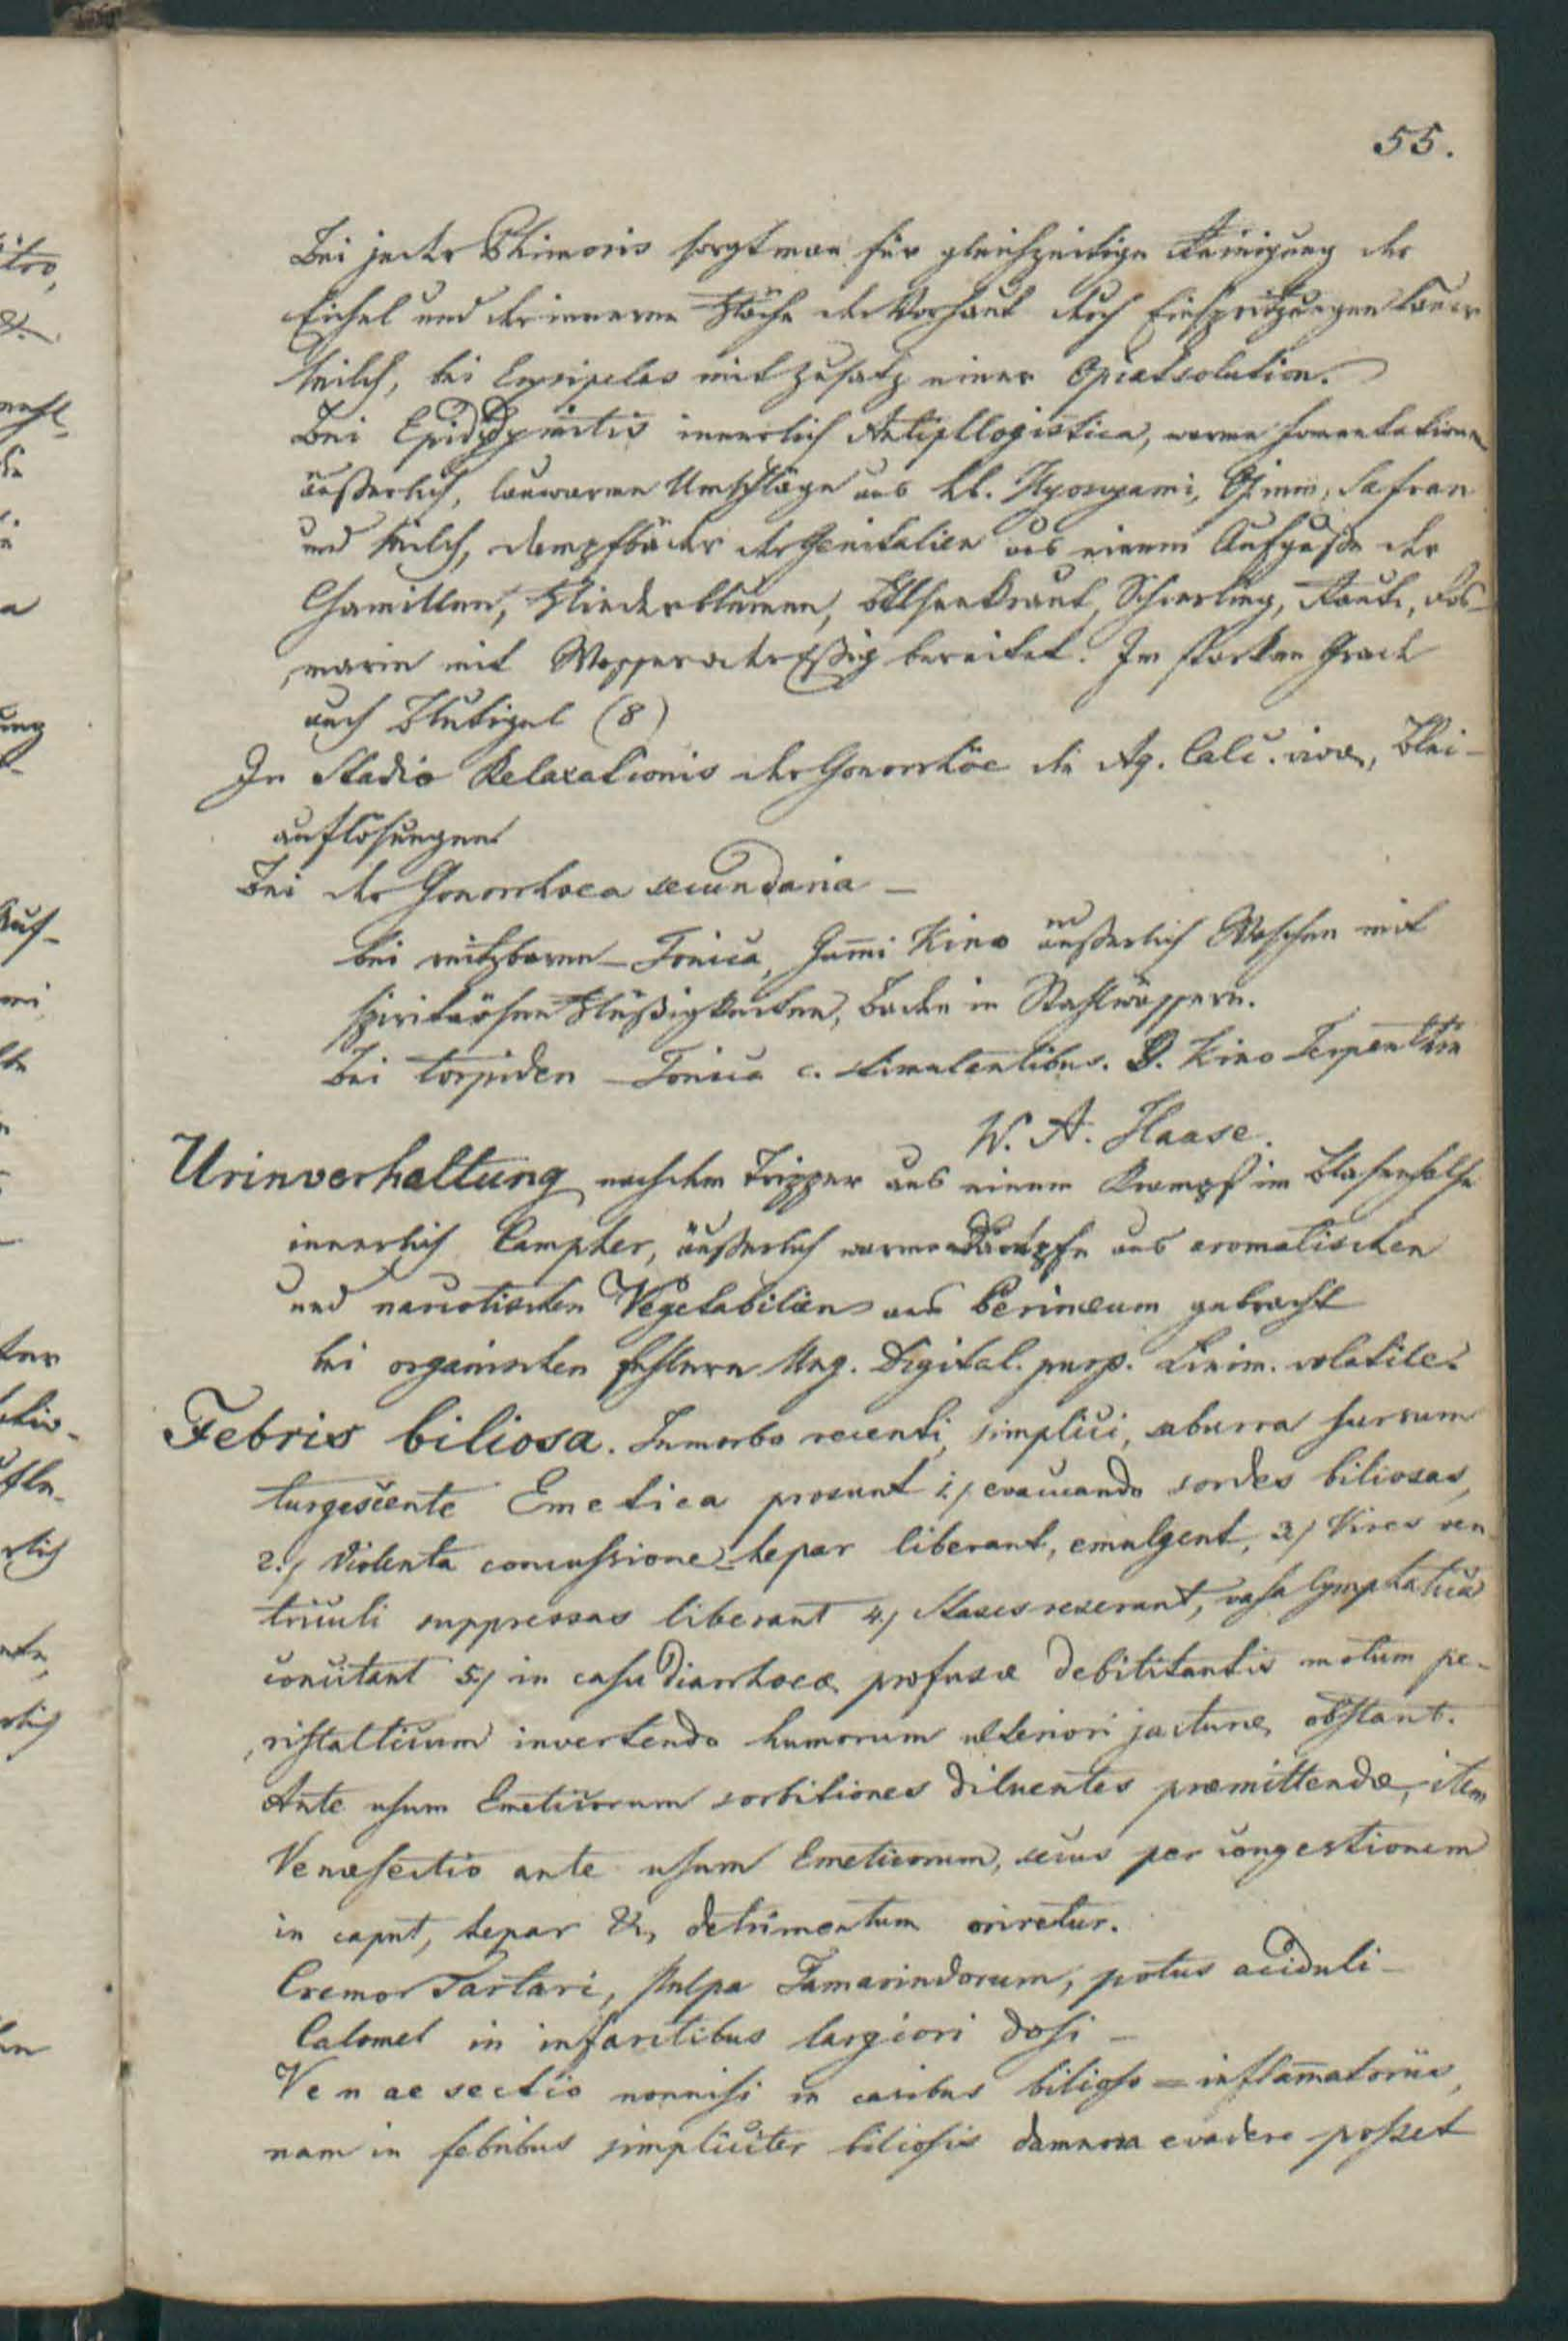 55.
Bei jeder Phimosis sorgt man für gleichzeitige Reinigung der
Eichel und der inneren Fläche der Vorhaut durch Einspritzungen lauer
Milch, bei Erysipelas mit Zusatz einer Opiatsolution.
Bei Epididymitis innerlich Antiphlogistica, warme Fomentationen
äußerlich, lauwarme Umschläge aus hb. Hyosyami, Opium, Safran
und Milch, Dampfbäder der Genitalien aus einem Aufguße der
Chamillen, Fliederblumen, Bilsenkraut, Schierling, Raute, Ros-
marin mit Wasser oder Eßig bereitet. Im starken Grade
auch Blutigel (8)
In Stadio Relaxationis der Gonorrhöe die Aq. Calc. viva, Blei-
auflösungen
Bei der Gonorrhoea secundaria –
bei reitzbaren – Tonica, Gum̅i Kino äußerlich Waschen mit
spirituösen Flüßigkeiten, Baden in Stahlwässern.
Bei torpiden – Tonica c. stimulantibus. G. Kino Terpentin
W. A. Haase.
Urinverhaltung nach dem Tripper aus einem Krampf im Blasenhalse
innerlich Campher, äußerlich warme Dämpfe aus aromatischen
und narcotischen Vegetabilien ans Perinæum gebracht
bei organischen Fehlern Ung. Digital. purp. Linim. volatile.
Febris biliosa. In morbo recenti, simplici, saburra sursum
turgescente Emetica prosunt 1.) evacuando sordes biliosas,
2.) Violenta concussione hepar liberant, emulgent, 3.) Vires ven
triculi suppressas liberant 4.) Stases reserant, vasa lymphatica
concitant 5.) in casu diarrhoeæ profusæ debilitantis motum pe-
ristalticum invertendo humorum ulteriori jacturæ obstant.
Ante usum Emeticorum sorbitiones diluentes præmittendæ, item
Venæsectio ante usum Emeticorum, secus per congestionem
in caput, hepar &, detrimentum oriretur.
Cremor Tartari, Pulpa Tamarindorum, potus aciduli –
Calomel in infarctibus largiori dosi –
Venaesectio nonnisi in casibus bilioso = inflam̅atoriis,
nam in febribus simpliciter biliosis damnosa evadere posset